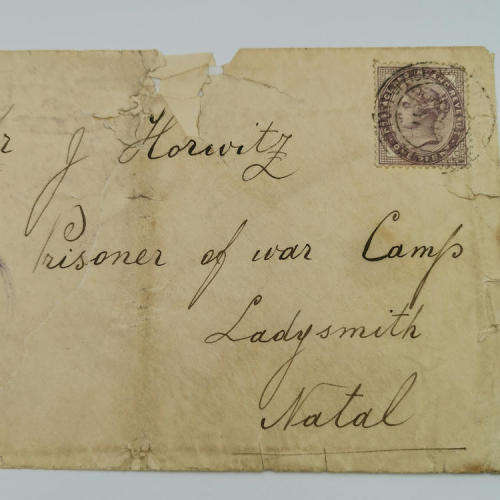 J Horwitz
Prisoner of war Camp
Ladysmith
Natal